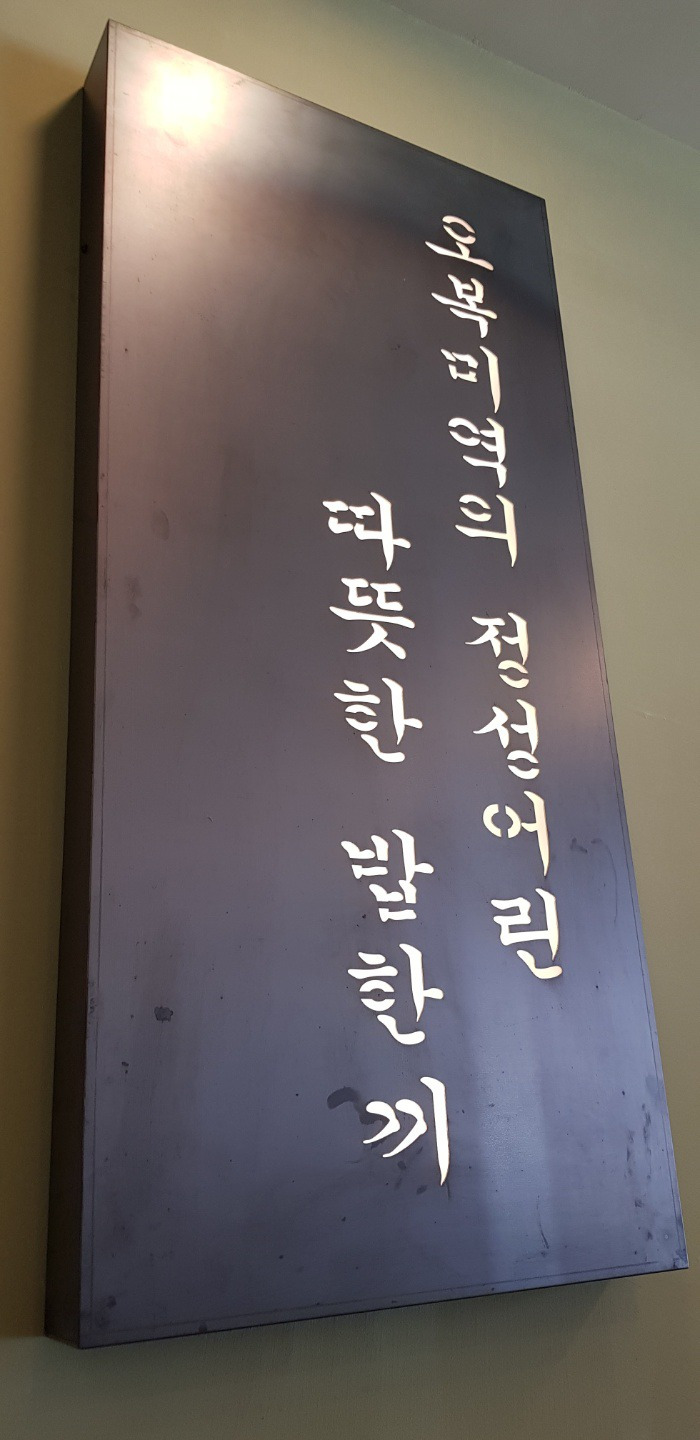 오복미역의 정성어린
따뜻한 밥한끼